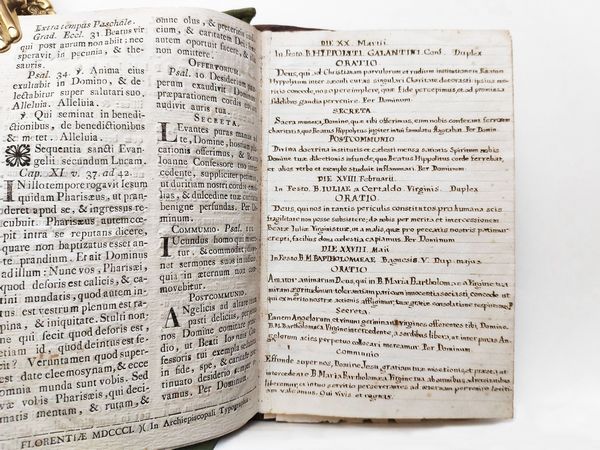 Extra tempus Paschale.
Grad. Eccl. 31 Beatus vir
qui post aurum non abiit: nec
speravit in pecunia, & the-
sauris.
Psal. 34. ℣. Anima ejus
exultabit in Domino, & de-
lectabitur super salutari suo,
Alleluia. Alleluia.
℣. Qui seminat in benedi-
ctionibus, de benedictionibus
& metet. Alleluia.
Sequentia sancti Evan-
gelii secundum Lucam.
Cap. XI v. 37. ad 42.
IN illo tempore rogavit Jesum
quidam Pharisæus, ut pran-
deret apud se, & ingressus re-
cubuit. Pharisæus autem cœ-
pit intra se reputans dicere,
quare non baptizatus esset an-
te prandium. Et ait Dominus
ad illum: Nunc vos, Pharisæi,
quod deforis est calicis, & ca-
tini mundatis, quod autem in-
tus est vestrum plenum est ra-
pina, & iniquitate. Stulti non-
ne qui fecit quod deforis est,
etiam id, quod deintus est fe-
cit? Verumtamen quod super-
est date eleemosynam, & ecce
omnia munda sunt vobis. Sed
væ vobis Pharisæis, qui deci-
matis mentam, & rutam, &
omne olus, & præteritis judi-
cium, & caritatem Dei:
autem oportuit facere, &
non omittere.
Offertorium.
Psal. 10. Desiderium pau-
perum exaudivit Dominus
præparationem cordis eorum
audivit auris tua.
Secreta.
LEvantes puras manus ad
te, Domine, hostiam
cationis offerimus, & Beato
Ioanne Confessore tuo inter-
cedente, suppliciter petimus
ut duritiam nostri cordis emol-
lias, & dulcedine tua cunctos
benigne perfundas. Per Do-
minum.
Communio. Psal. 111.
IUcundus homo qui misere-
tur, & commodat, dispo-
net sermones suos in judicio:
quia in æternum non com-
movebitur.
Postcommunio.
ANgelicis ad altare tuum
pasti deliciis, per
nos Domine comitare præsi-
dio, ut Beati Ioannis Con-
fessoris tui exemplo
in fide, spe, & caritate
tinuato desiderio semper
vamus. Per Dominum.
FLORENTIÆ MDCCCL )( In Archiepiscopali Typographia
DIE XX. Martii.
In Festo B. HIPPOLITI GALANTINI Conf. Duplex
ORATIO
Deus, qui ad Christianam parvulorum et rudium institutionem Beatum
Hippolytum inter sæculi curas singulari Charitate decorasti: ipsius me-
ritis concede, nos opere implere, quæ fide percepimus, et ad promissa
fidelibus gaudia pervenire. Per Dominum.
SECRETA
Sacra munera, Domine, quæ tibi offerimus, eum nobis conferant fervorem
charitatis, quo Beatus Hippolytus jugiter in tui famulatu flagrabat. Per Domin.
POSTCOMMUNIO
Divina doctrina institutis et cælesti mensa satiatis Spiritum nobis
Domine tuæ dilectionis infunde, quo Beatus Hippolytus corde ferrebat,
et alios verbo et exemplo studuit inflammari. Per Dominum.
DIE XVIII. Februarii.
In Festo B. IULIAE a Certaldo Virginis. Duplex
ORATIO
Deus, qui nos in tantis periculis constitutos pro humana scis
fragilitate non posse subsistere; da nobis per merita et intercessionem
Beatæ Iuliæ Virginis tuæ, ut a malis, quæ pro peccatis nostris patimur
erepti, facilius dona cælestia capiamus. Per Dominum.
DIE XXVIII. Maii
In Festo B. M. BARTHOLOMAEAE Bagnesis. V. Dup. majus
ORATIO
Amator animarum Deus, qui in B. Maria Bartholomæa Virgine tua
miram ægritudinum tolerantiam pari cum innocentia sociasti, concede ut
qui ex merito nostræ actionis affligimur, tuæ gratiæ consolatione respiremus.
Secreta
Panem Angelorum et vinum germinans Virgines offerentes tibi, Domine,
B. M. Bartholomæa Virgine intercedente, a sordibus liberari, et inter puros An-
gelorum acies perpetuo collocari mereamur. Per Dominum.
Communio
Effunde super nos, Domine Jesu, gratiam tuæ miserationis, et præsta ut
intercedente B. Maria Bartholomæa Virgine tua ab omnibus, adversantibus
liberemur, et in tuo servitio perseverantes ad æternam pervenire læti-
am valeamus. Qui vivis et regnas.